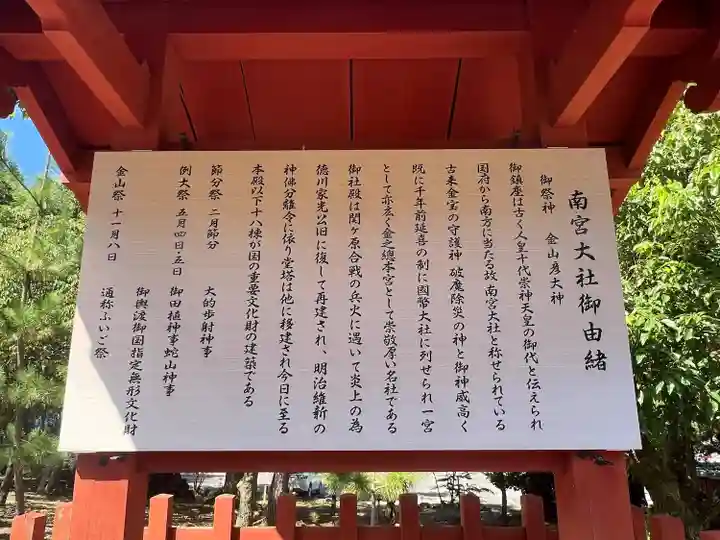 南宮大社御由緒
御祭神　金山彦大神
御鎮座は古く人皇十代崇神天皇の御代と伝えられ
国府から南方に当たる故 南宮大社と称せられている
古来金宮の守護神 破魔除災の神と御神威高く
既に千年前延喜の制に國幣大社に列せられ一宮
として亦広く金之總本宮として崇敬厚い名社である
御社殿は関ヶ原合戦の兵火に遇いて炎上の為
徳川家光公旧に復して再建され、明治維新の
神佛分離令に依り堂塔は他に移建され今日に至る
本殿以下十八棟が国の重要文化財の建築である
節分祭 二月節分　大的歩射神事
例大祭 五月四日・五日　御田植神事蛇山神事
御輿渡御国指定無形文化財
金山祭 十一月八日　通称ふいご祭